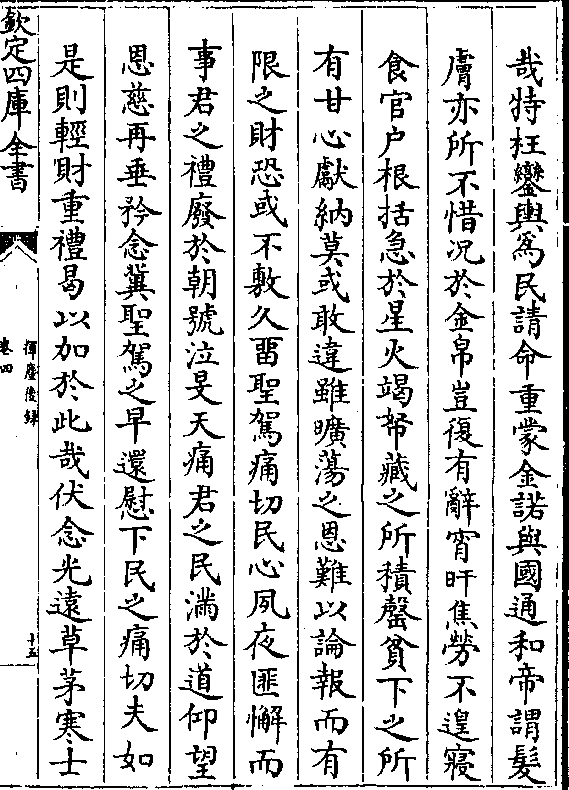 哉特枉鑾輿為民請命重蒙金諾與國通和帝謂髮
膚亦所不惜况於金帛豈復有辭宵旰焦勞不遑寢
食官户根括急於星火竭帑藏之所積罄貧下之所
有甘心獻納莫或敢違雖曠蕩之恩難以論報而有
限之財恐或不敷久畱聖駕痛切民心夙夜匪懈而
事君之禮廢於朝號泣旻天痛君之民滿於道仰望
恩慈再垂矜念冀聖駕之早還慰下民之痛切夫如
是則輕財重禮曷以加於此哉伏念光遠草茅寒士
欽定四庫全書
揮麈後録
卷四
十五